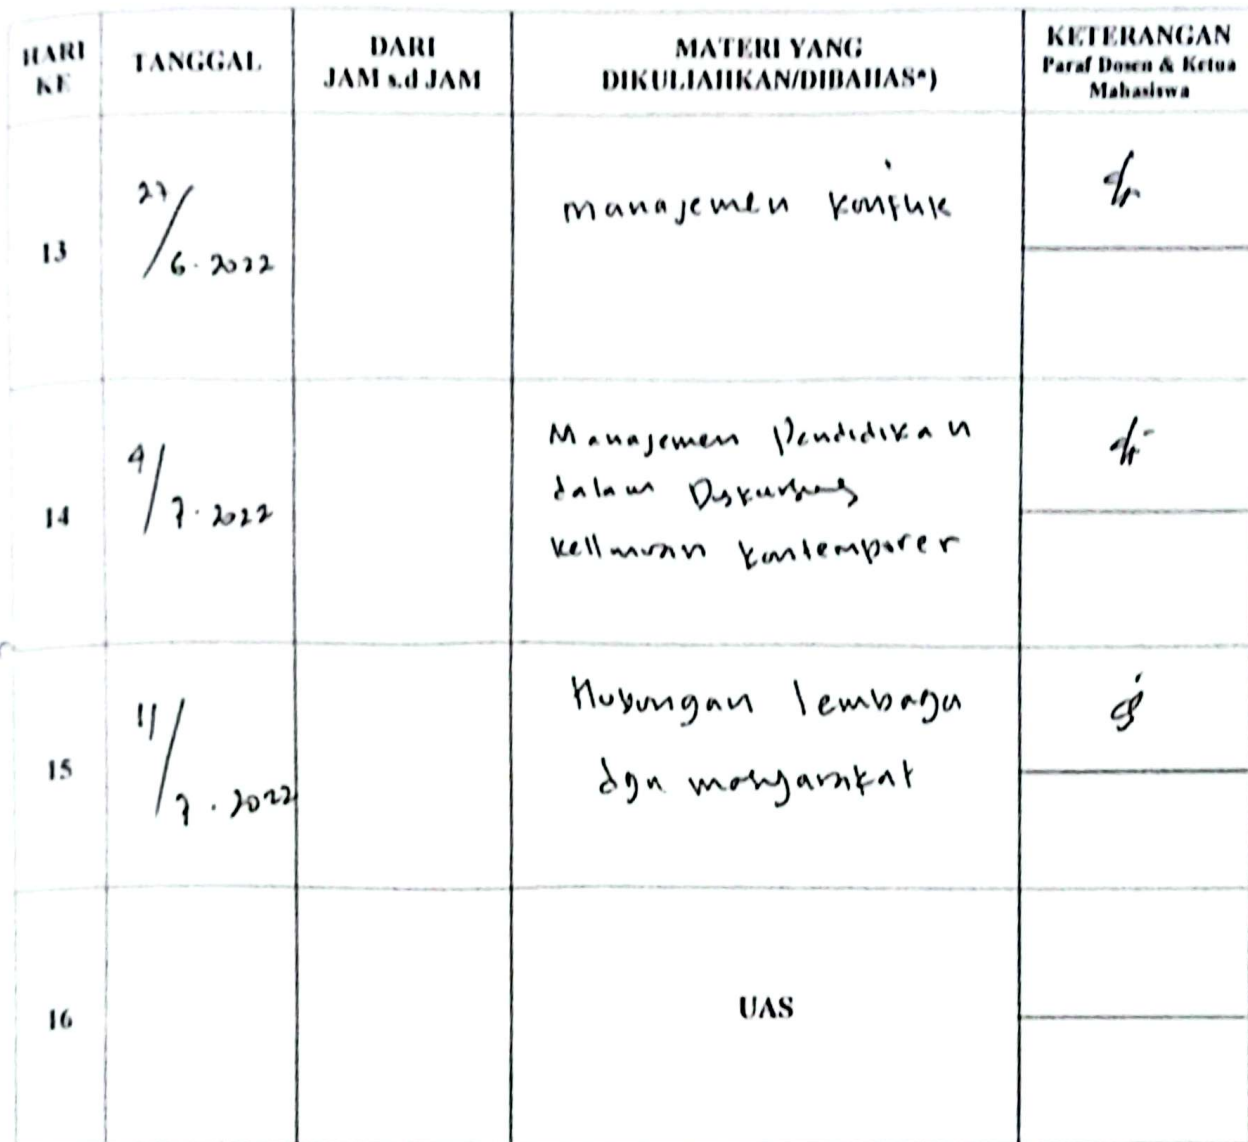 HARI KE
TANGGAL
DARI JAM s.d JAM
MATERI YANG DIKULIAHKAN/DIBAHAS*)
KETERANGAN
Paraf Dosen & Ketua Mahasiswa
13
27/6.2022
manajemen konflik
14
4/7.2022
Manajemen Pendidikan
dalam
kontemporer
15
11/7.2022
Hubungan lembaga
dgn masyarakat
16
UAS